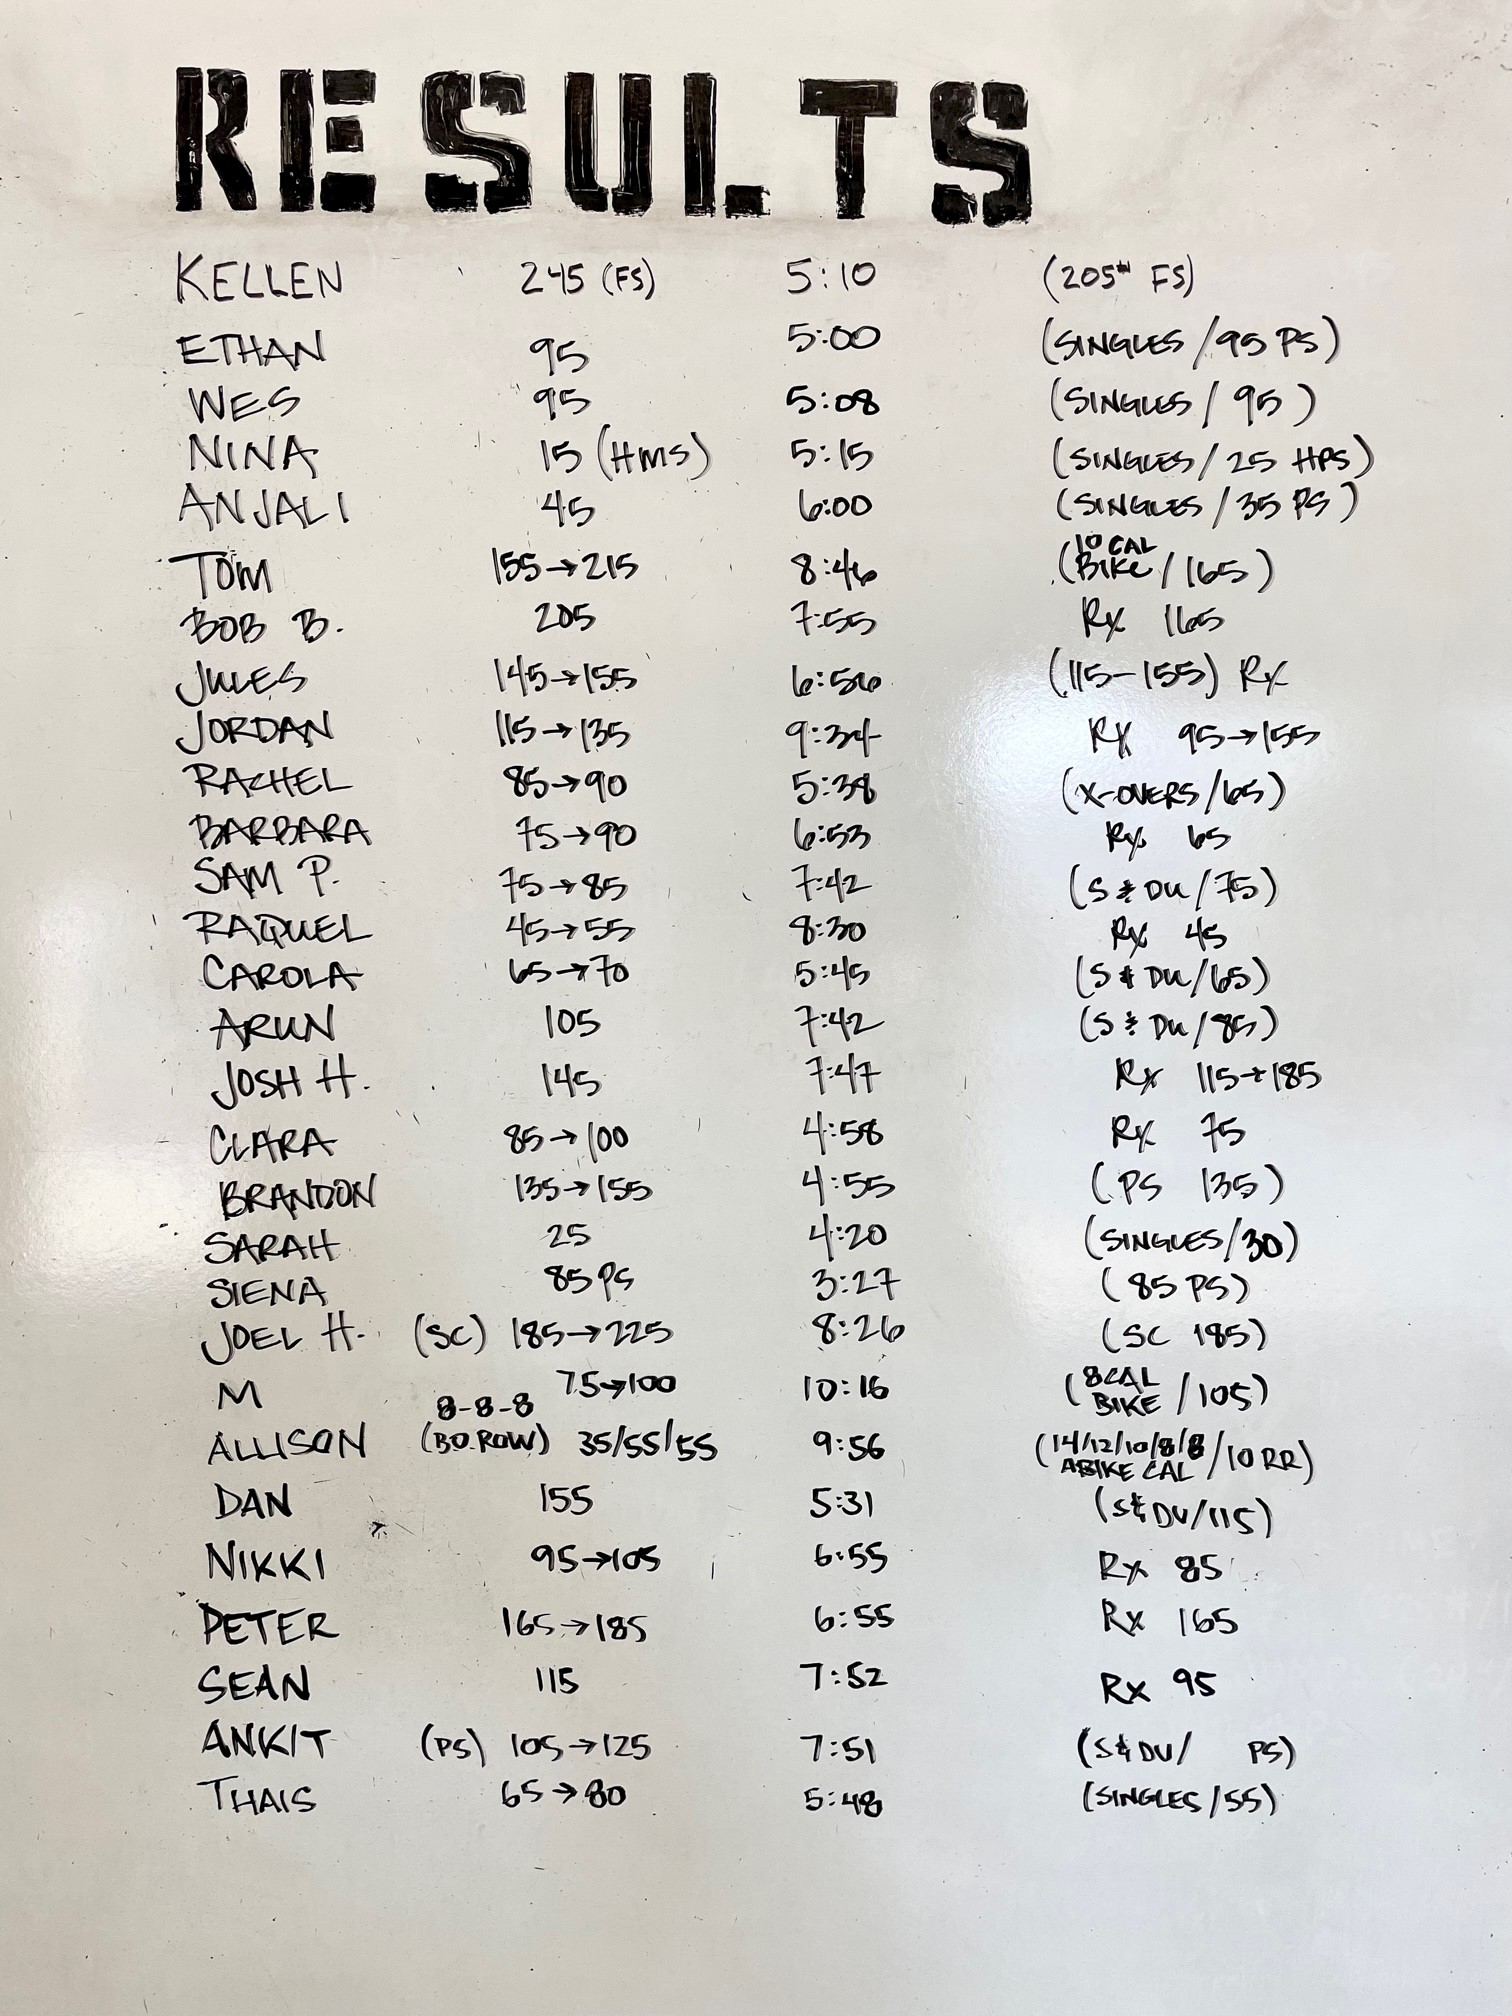 RESULTS
KELLEN 245 (FS) 5:10 (205# FS)
ETHAN 95 5:00 (SINGLES/95 PS)
WES 95 5:08 (SINGLES/95)
NINA 15 (HMS) 5:15 (SINGLES/25 HPS)
ANJALI 45 6:00 (SINGLES/35 PS)
TOM 155→215 8:46 (10 CAL BIKE/165)
BOB B. 205 7:55 Rx 165
JULES 145→155 6:56 (115-155) Rx
JORDAN 115→135 9:34 Rx 95→155
RACHEL 85→90 5:38 (X-OVERS/65)
BARBARA 75→90 6:53 Rx 65
SAM P. 75→85 7:42 (S & DU/75)
RAQUEL 45→55 8:30 Rx 45
CAROLA 65→70 5:45 (S & DU/65)
ARUN 105 7:42 (S & DU/85)
JOSH H. 145 7:47 Rx 115→185
CLARA 85→100 4:58 Rx 75
BRANDON 135→155 4:55 (PS 135)
SARAH 25 4:20 (SINGLES/30)
SIENA 85 PS 3:27 (85 PS)
JOEL H. (SC) 185→225 8:26 (SC 185)
M 75→100 10:16 (8 CAL BIKE/105)
ALLISON 8-8-8 (BO.ROW) 35/55/55 9:56 (14/12/10/8/8 ABIKE CAL/10 RR)
DAN 155 5:31 (S&DU/115)
NIKKI 95→105 6:55 Rx 85
PETER 165→185 6:55 Rx 165
SEAN 115 7:52 Rx 95
ANKIT (PS) 105→125 7:51 (S&DU/ PS)
THAIS 65→80 5:48 (SINGLES/55)